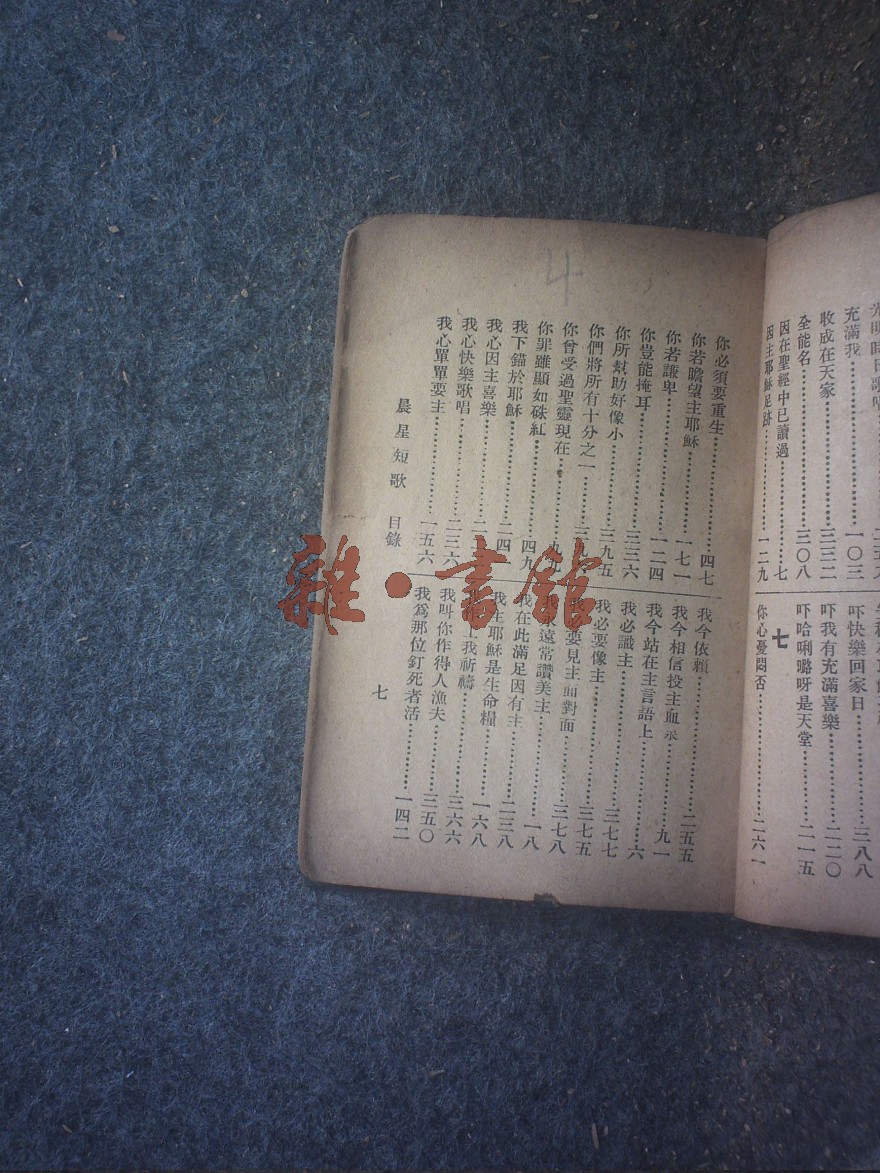 充滿我……一〇三
收成在天家……三三二
全能名……三〇八
因在聖經中已讀過……七
因主耶穌足跡……一二九
吓快樂回家日……三八八
吓我有充滿喜樂……二二〇
吓哈唎嚕呀是天堂……二一五
七
你心憂悶否……二六一
4
你必須要重生……四七
你若瞻望主耶穌……一七一
你若謙卑……一二四
你豈能掩耳……三三六
你所幫助好像小……三九五
你們將所有十分之一
你曾受過聖靈現在
你罪雖顯如硃紅……四九
我下錨於耶穌……二四
我心因主喜樂
我心快樂歌唱……二三六
我心單單要主……一五六
我今依賴……二五五
我今相信投主血泉……九一
我今站在主言語上……六
我必識主……三七七
我必要像主……三七五
要見主面對面……三七八
遠常讚美主……一八
我在此滿足因有主……二三八
我主耶穌是生命糧……一六八
我祈禱……三六六
我叫你作得人漁夫……三五〇
我爲那位釘死者活……一四二
晨星短歌 目錄
七
雜·書館